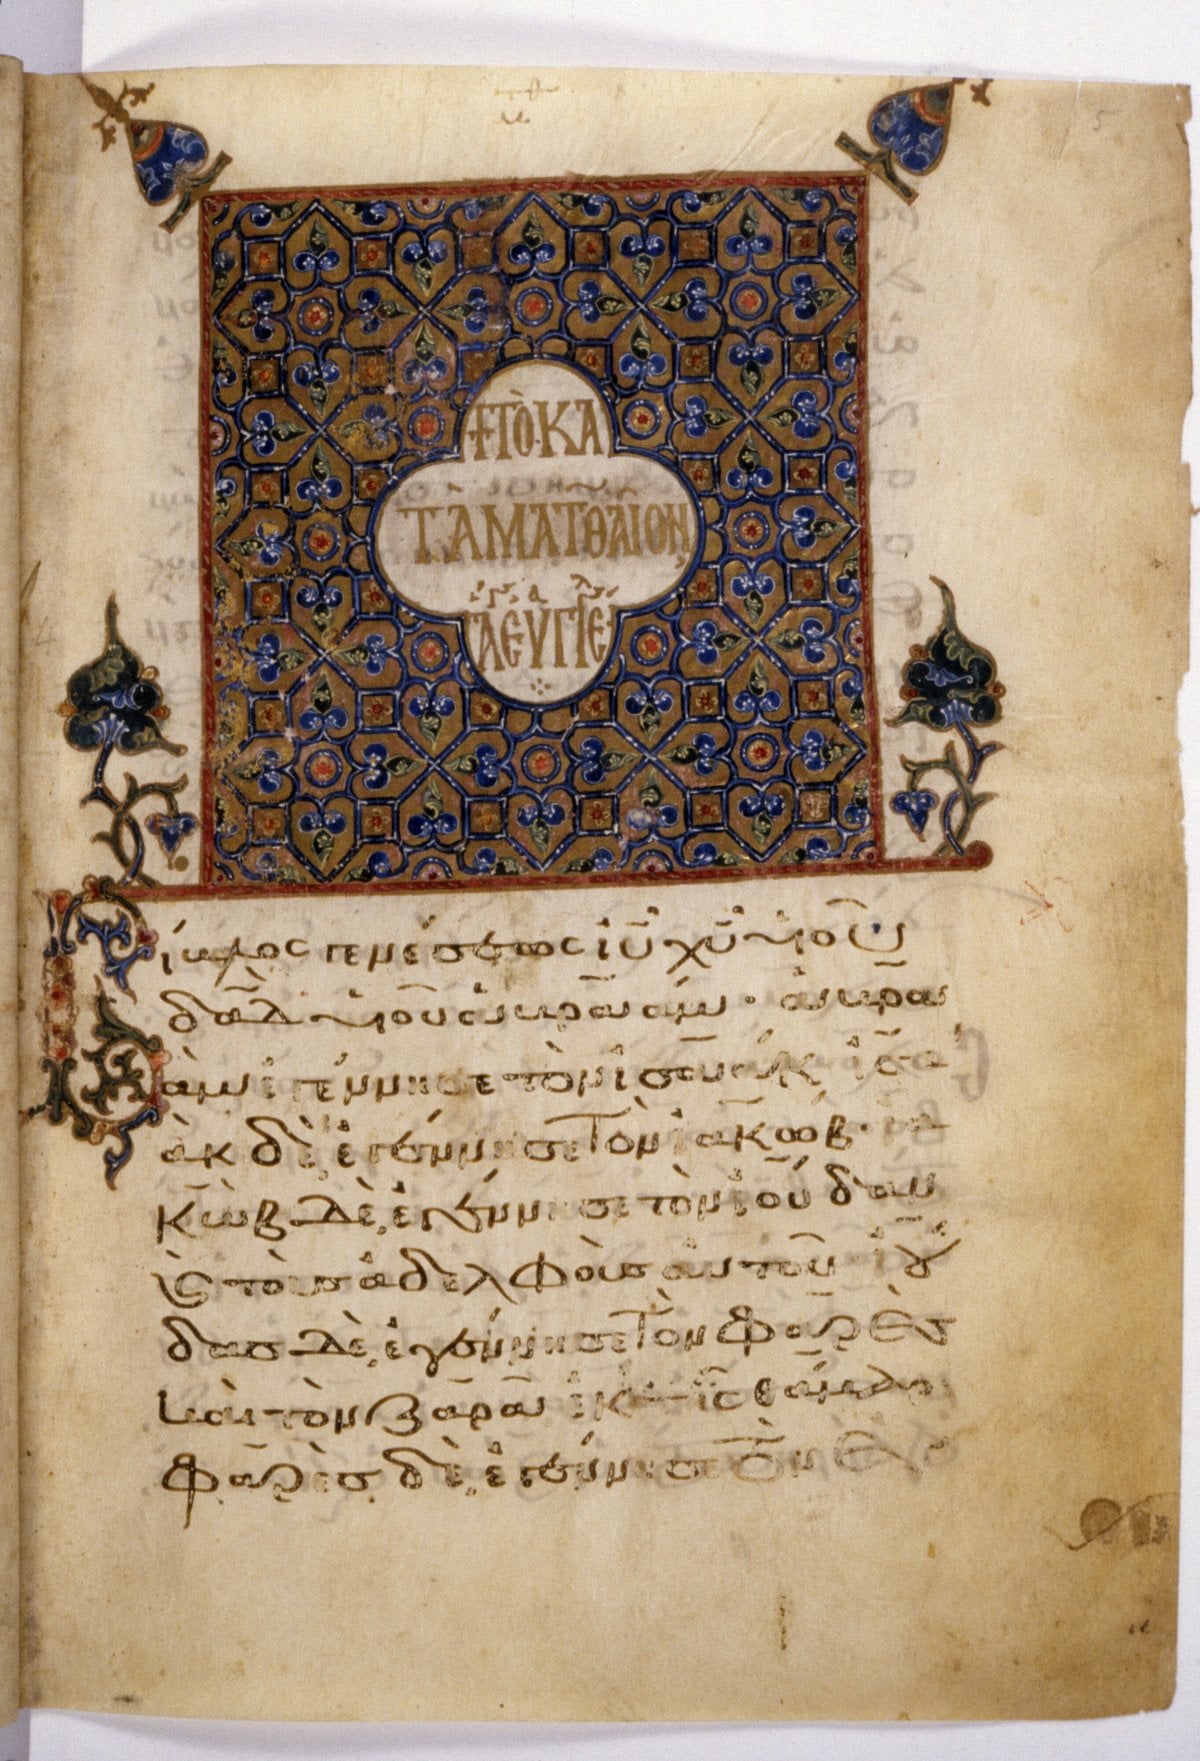 5
+ΤὸΚΑ
ΤᾺΜΑΤΘΑῖΟΝ
Βίβλος γενέσεως ἰῦ χῦ υἱοῦ
δᾱδ υἱοῦ ἀβραάμ· ἀβρα
ὰμ ἐγέννησε τὸν ἰσαάκ ἰσα
ὰκ δὲ, ἐγέννησε τὸν ἰακώβ· ἰα
κὼβ δὲ, ἐγέννησε τὸν ἰούδαν
ϗ τοὺς ἀδελφοὺς αὐτοῦ ἰού
δας δὲ, ἐγέννησε τὸν φαρὲς
καὶ τὸν ζαρὰ ἐκ τῆς θάμαρ
φαρὲς δὲ, ἐγέννησε τὸν